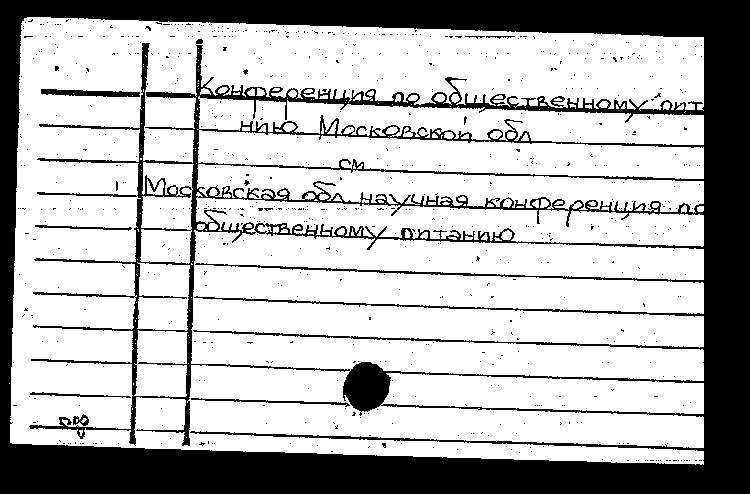 Конференция по общественному пита
нию Московской обл
см
Московская обл. научная конференция по
общественному питанию